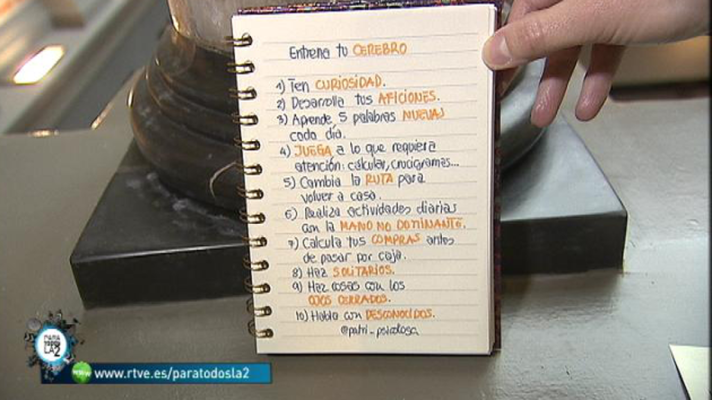 Entrena tu CEREBRO
1) Ten CURIOSIDAD.
2) Desarrolla tus AFICIONES.
3) Aprende 5 palabras NUEVAS
cada día.
4) JUEGA a lo que requiera
atención: cálcular, crucigramas...
5) Cambia la RUTA para
volver a casa.
6) Realiza actividades diarias
con la MANO NO DOMINANTE.
7) Calcula tus COMPRAS antes
de pasar por caja.
8) Haz SOLITARIOS.
9) Haz cosas con los
OJOS CERRADOS.
10) Habla con DESCONOCIDOS.
@patri_psicologa
PARA
TODOS
LA2
www.rtve.es/paratodosla2